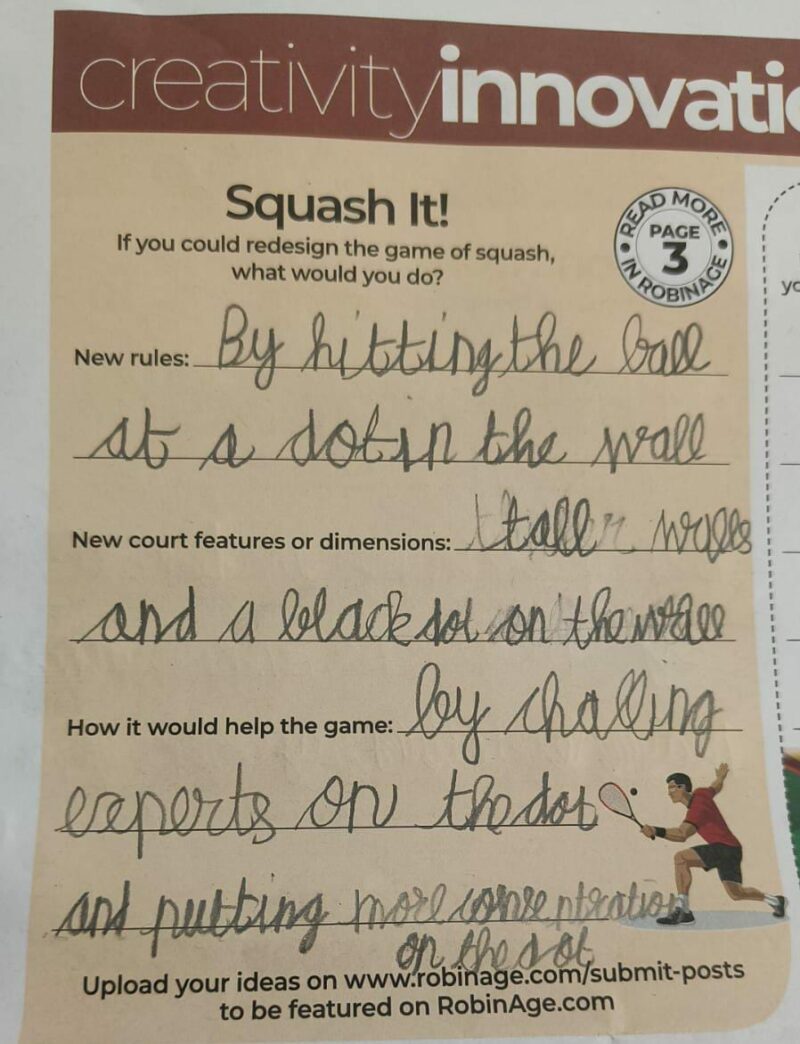 creativityinnovati
Squash It!
If you could redesign the game of squash,
what would you do?
READ MORE
PAGE
3
IN ROBINAGE
yo
New rules: By hitting the ball
at a dot in the wall
New court features or dimensions: tall walls
and a black dot on the wall
How it would help the game: by challing
experts on the dot
and putting more consentration
on the dot
Upload your ideas on www.robinage.com/submit-posts
to be featured on RobinAge.com